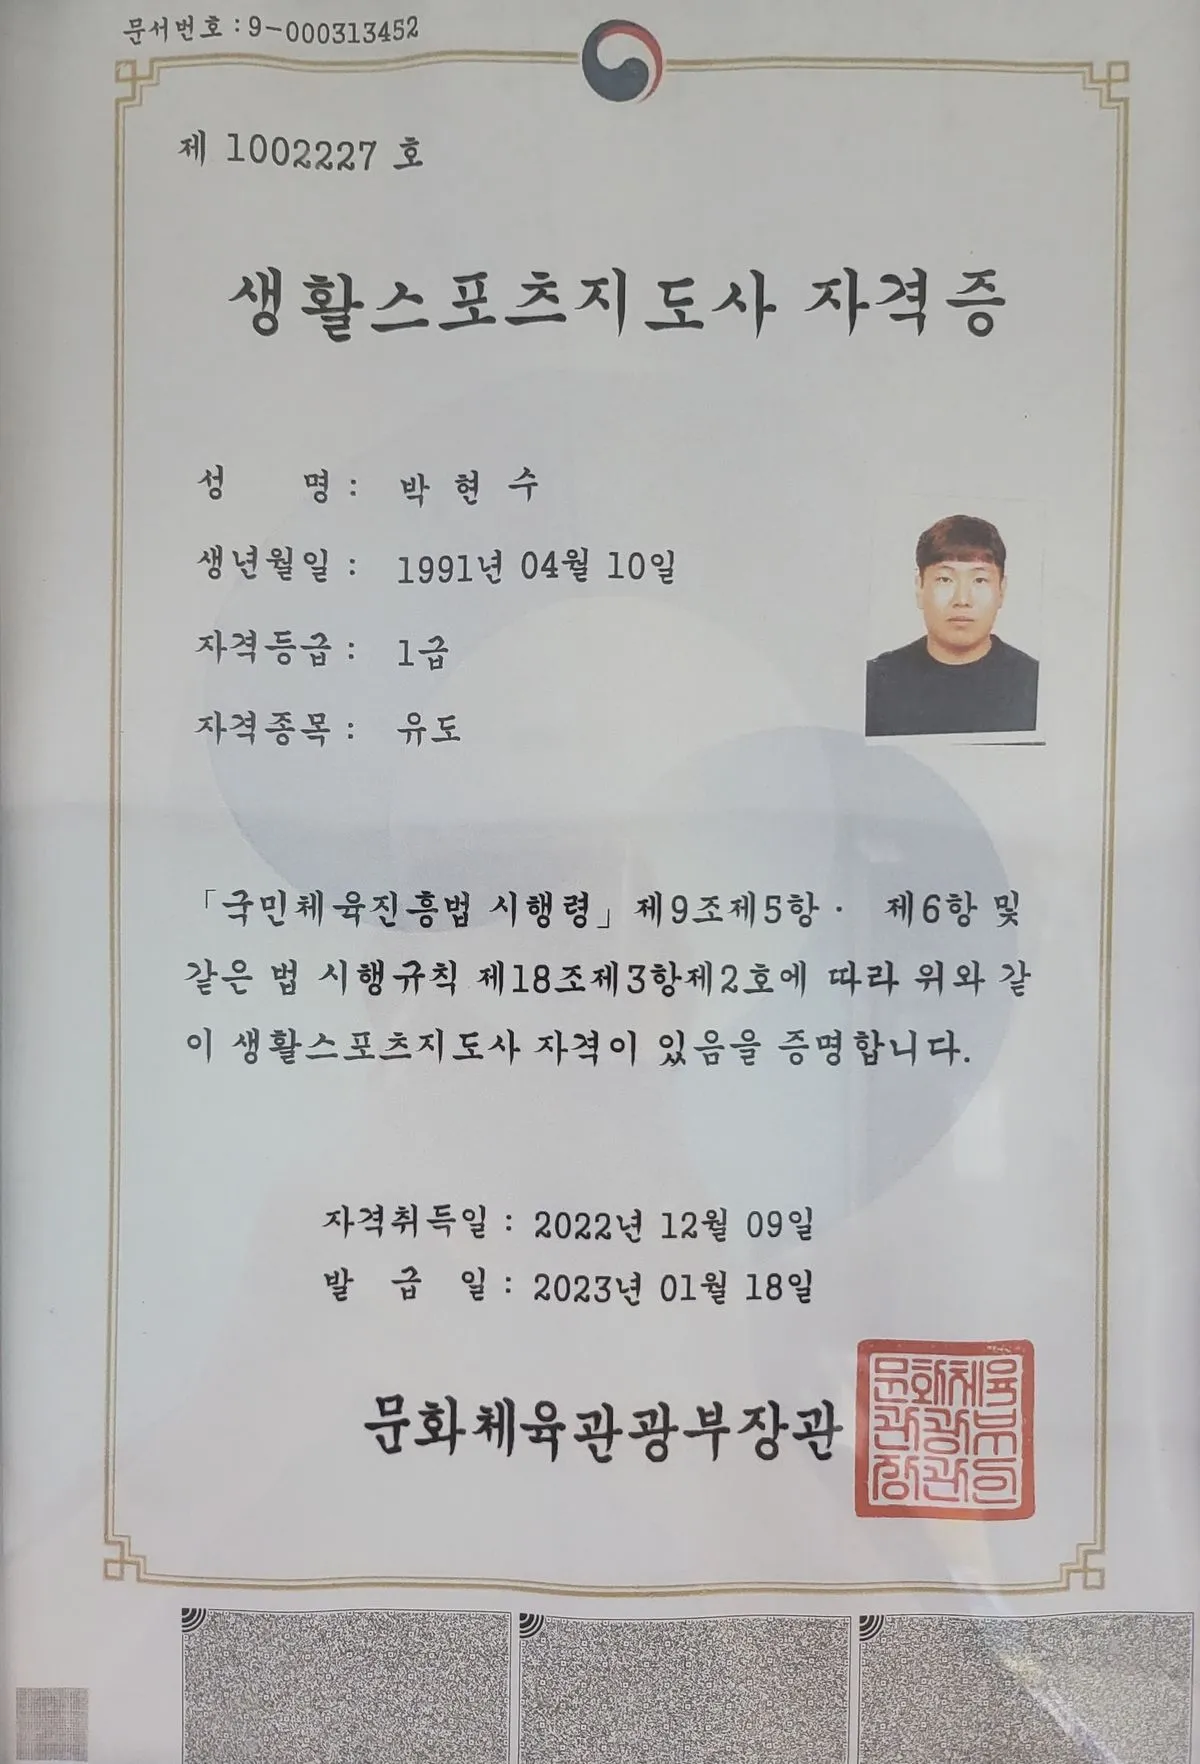 문서번호 : 9-000313452
제 1002227 호
생활스포츠지도사 자격증
성 명 : 박 현 수
생년월일 : 1991년 04월 10일
자격등급 : 1급
자격종목 : 유도
「국민체육진흥법 시행령」제9조제5항 · 제6항 및
같은 법 시행규칙 제18조제3항제2호에 따라 위와 같
이 생활스포츠지도사 자격이 있음을 증명합니다.
자격취득일 : 2022년 12월 09일
발 급 일 : 2023년 01월 18일
문화체육관광부장관
문화체육
관광부
장관인